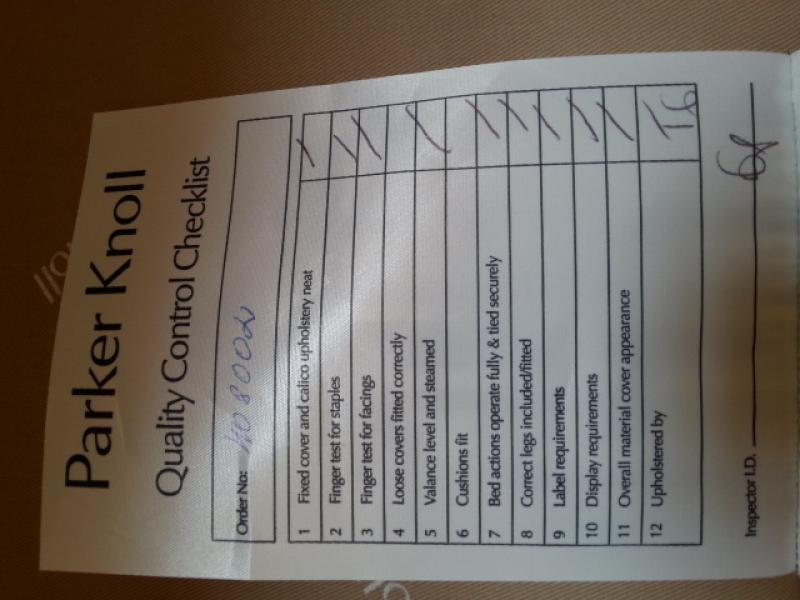 Parker Knoll
Quality Control Checklist
Order No:
1 Fixed cover and calico upholstery neat
2 Finger test for staples
3 Finger test for facings
4 Loose covers fitted correctly
5 Valance level and steamed
6 Cushions fit
7 Bed actions operate fully & tied securely
8 Correct legs included/fitted
9 Label requirements
10 Display requirements
11 Overall material cover appearance
12 Upholstered by
Inspector I.D.